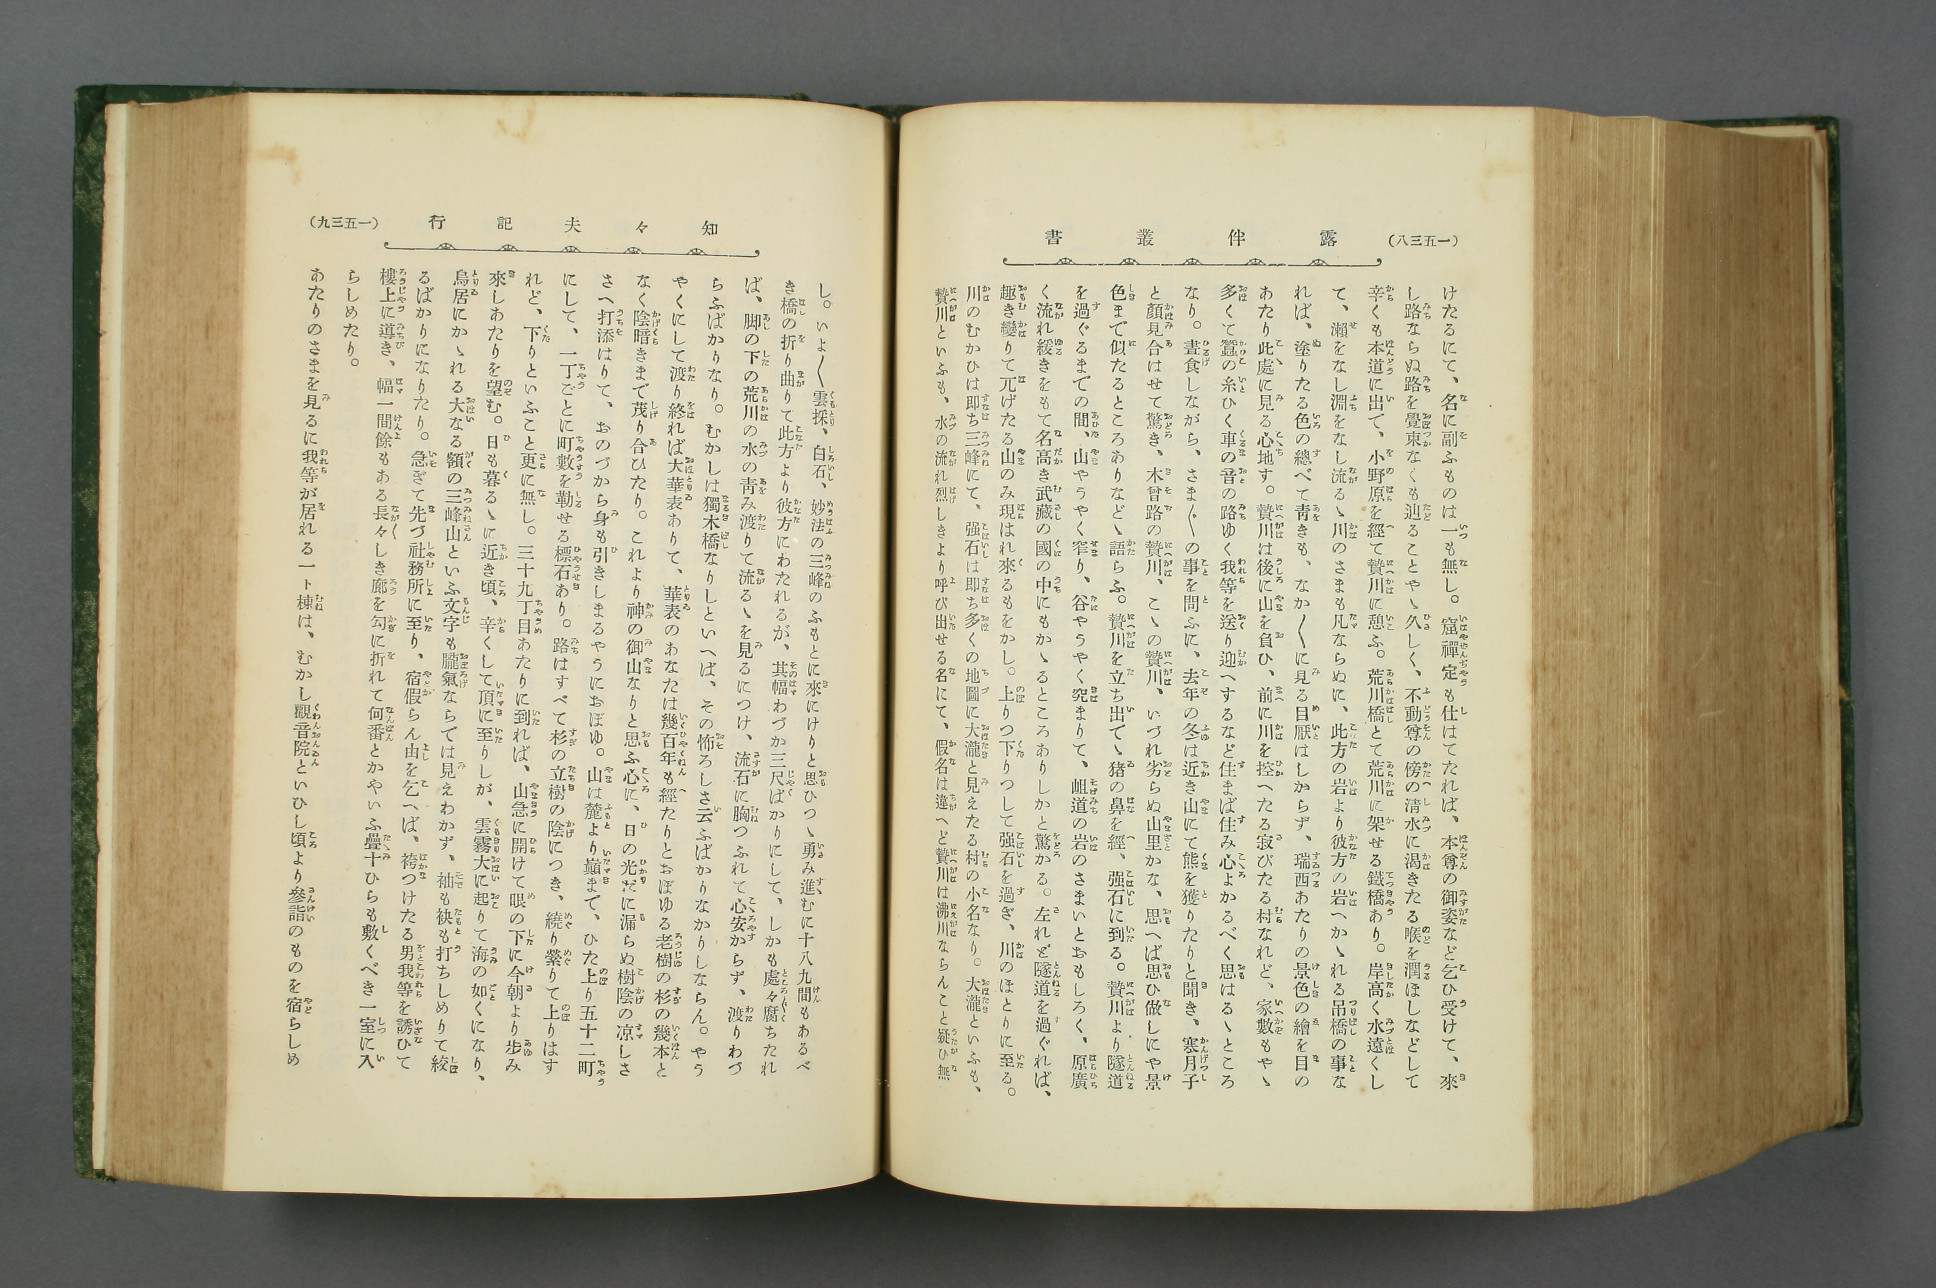 (一五三八)
露伴叢書
けたるにて、名に副ふものは一も無し。窟禪定も仕はてたれば、本尊の御姿など乞ひ受けて、來
し路ならぬ路を覺束なくも辿ることやゝ久しく、不動尊の傍の清水に渴きたる喉を潤ほしなどして
辛くも本道に出で、小野原を經て贄川に憩ふ。荒川橋とて荒川に架せる鐵橋あり。岸高く水遠くし
て、瀬をなし淵をなし流るゝ川のさまも凡ならぬに、此方の岩より彼方の岩へかゝれる吊橋の事な
れば、塗りたる色の總べて青きも、なか〳〵に見る目厭はしからず、瑞西あたりの景色の繪を目の
あたり此處に見る心地す。贄川は後に山を負ひ、前に川を控へたる寂びたる村なれど、家數もやゝ
多くて蠶の糸ひく車の音の路ゆく我等を送り迎へするなど住まば住み心よかるべく思はるゝところ
なり。晝食しながら、さま〴〵の事を問ふに、去年の冬は近き山にて熊を獲りたりと聞き、寒月子
と顏見合はせて驚き、木曾路の贄川、こゝの贄川、いづれ劣らぬ山里かな、思へば思ひ做しにや景
色まで似たるところありなどゝ語らふ。贄川を立ち出でゝ猪の鼻を經、强石に到る。贄川より隧道
を過ぐるまでの間、山やうやく窄り、谷やうやく究まりて、岨道の岩のさまいとおもしろく、原廣
く流れ緩きをもて名高き武藏の國の中にもかゝるところありしかと驚かる。左れど隧道を過ぐれば、
趣き變りて兀げたる山のみ現はれ來るもをかし。上りつ下りつして强石を過ぎ、川のほとりに至る。
川のむかひは即ち三峰にて、强石は即ち多くの地圖に大瀧と見えたる村の小名なり。大瀧といふも、
贄川といふも、水の流れ烈しきより呼び出せる名にて、假名は違へど贄川は沸川ならんこと疑ひ無
知々夫記行
(一五三九)
し。いよ〳〵雲採、白石、妙法の三峰のふもとに來にけりと思ひつゝ勇み進むに十八九間もあるべ
き橋の折り曲りて此方より彼方にわたれるが、其幅わづか三尺ばかりにして、しかも處々腐ちたれ
ば、脚の下の荒川の水の青み渡りて流るゝを見るにつけ、流石に胸つふれて心安からず、渡りわづ
らふばかりなり。むかしは獨木橋なりしといへば、その怖ろしさ云ふばかりなかりしならん。やう
やくにして渡り終れば大華表ありて、華表のあなたは幾百年も經たりとおぼゆる老樹の杉の幾本と
なく陰暗きまで茂り合ひたり。これより神の御山なりと思ふ心に、日の光だに漏らぬ樹陰の凉しさ
さへ打添はりて、おのづから身も引きしまるやうにおぼゆ。山は麓より巓まで、ひた上り五十二町
にして、一丁ごとに町數を勒せる標石あり。路はすべて杉の立樹の陰につき、繞り縈りて上りはす
れど、下りといふこと更に無し。三十九丁目あたりに到れば、山急に開けて眼の下に今朝より步み
來しあたりを望む。日も暮るゝに近き頃、辛くして頂に至りしが、雲霧大に起りて海の如くになり、
鳥居にかゝれる大なる額の三峰山といふ文字も朧氣ならでは見えわかず、袖も袂も打ちしめりて絞
るばかりになりたり。急ぎて先づ社務所に至り、宿假らん由を乞へば、袴つけたる男我等を誘ひて
樓上に導き、幅一間餘もある長々しき廊を勾に折れて何番とかやいふ疊十ひらも敷くべき一室に入
らしめたり。
あたりのさまを見るに我等が居れる一ト棟は、むかし觀音院といひし頃より參詣のものを宿らしめ